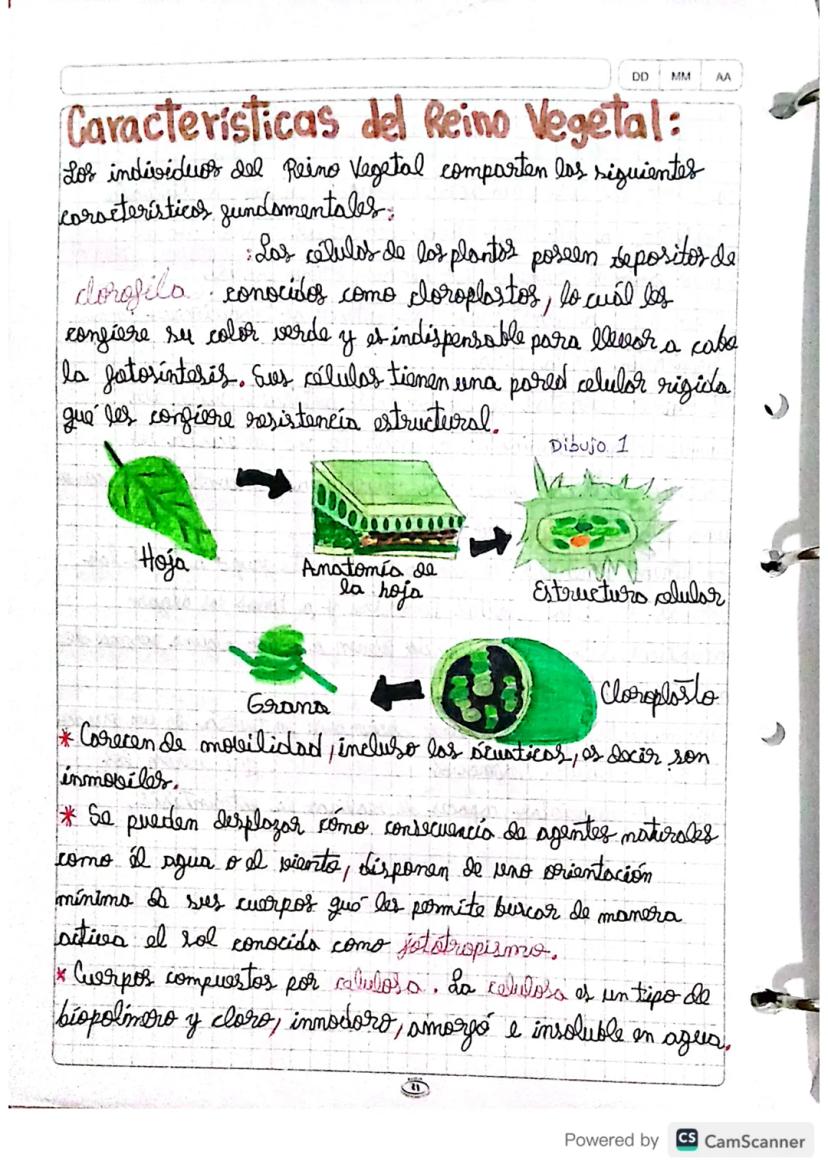 DD MM AA
Características del Reino Vegetal:
Los individuos del Reino Vegetal comparten las siguientes
características fundamentales:
:Las células de las plantas poseen depositos de
clorofila conocidos como cloroplastos, lo cuál les
confiere su color verde y es indispensable para llevar a cabo
la fotosíntesis. Sus células tienen una pared celular rigida
qué les confiere resistencia estructural.
Dibujo 1
Hoja
Anatomía de
la hoja
Estructura celular
Grana
Cloroplasto
* Carecen de movilidad, incluso las ácuaticas, es decir son
inmóviles.
* Se pueden desplazar cómo consecuencia de agentes naturales
como él agua o el viento, disponen de una orientación
mínima de sus cuerpos qué les permite buscar de manera
activa el sol conocido como fototropismo.
* Cuerpos compuestos por celulosa. La celulosa es un tipo de
biopolímero y claro, innodoro, amorfó e insoluble en agua.
Powered by CS CamScanner